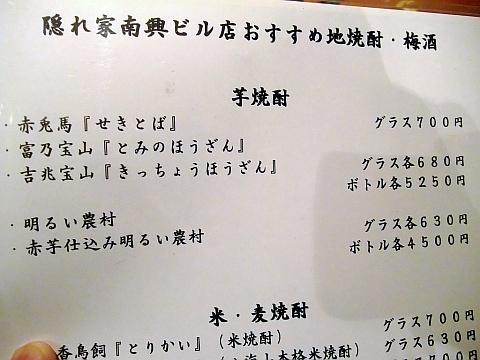 隠れ家南興ビル店おすすめ地焼酎・梅酒
芋焼酎
・赤兎馬『せきとば』 グラス700円
・富乃宝山『とみのほうざん』
・吉兆宝山『きっちょうほうざん』 グラス各680円
ボトル各5250円
・明るい農村 グラス各630円
・赤芋仕込み明るい農村 ボトル各4500円
米・麦焼酎
香鳥飼『とりかい』(米焼酎) グラス700円
本格米焼酎) グラス630円